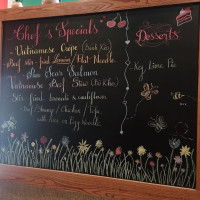 Chef's Specials
Vietnamese Crepe (Bánh Xèo)
Beef stir-fried Lemon Flat Noodle
Pan Sear Salmon
Vietnamese Beef Stew (Bò Kho)
Stir fried broccoli & cauliflower
Beef / Shrimp / Chicken / Tofu
with rice or Egg Noodle
Desserts
Key Lime Pie